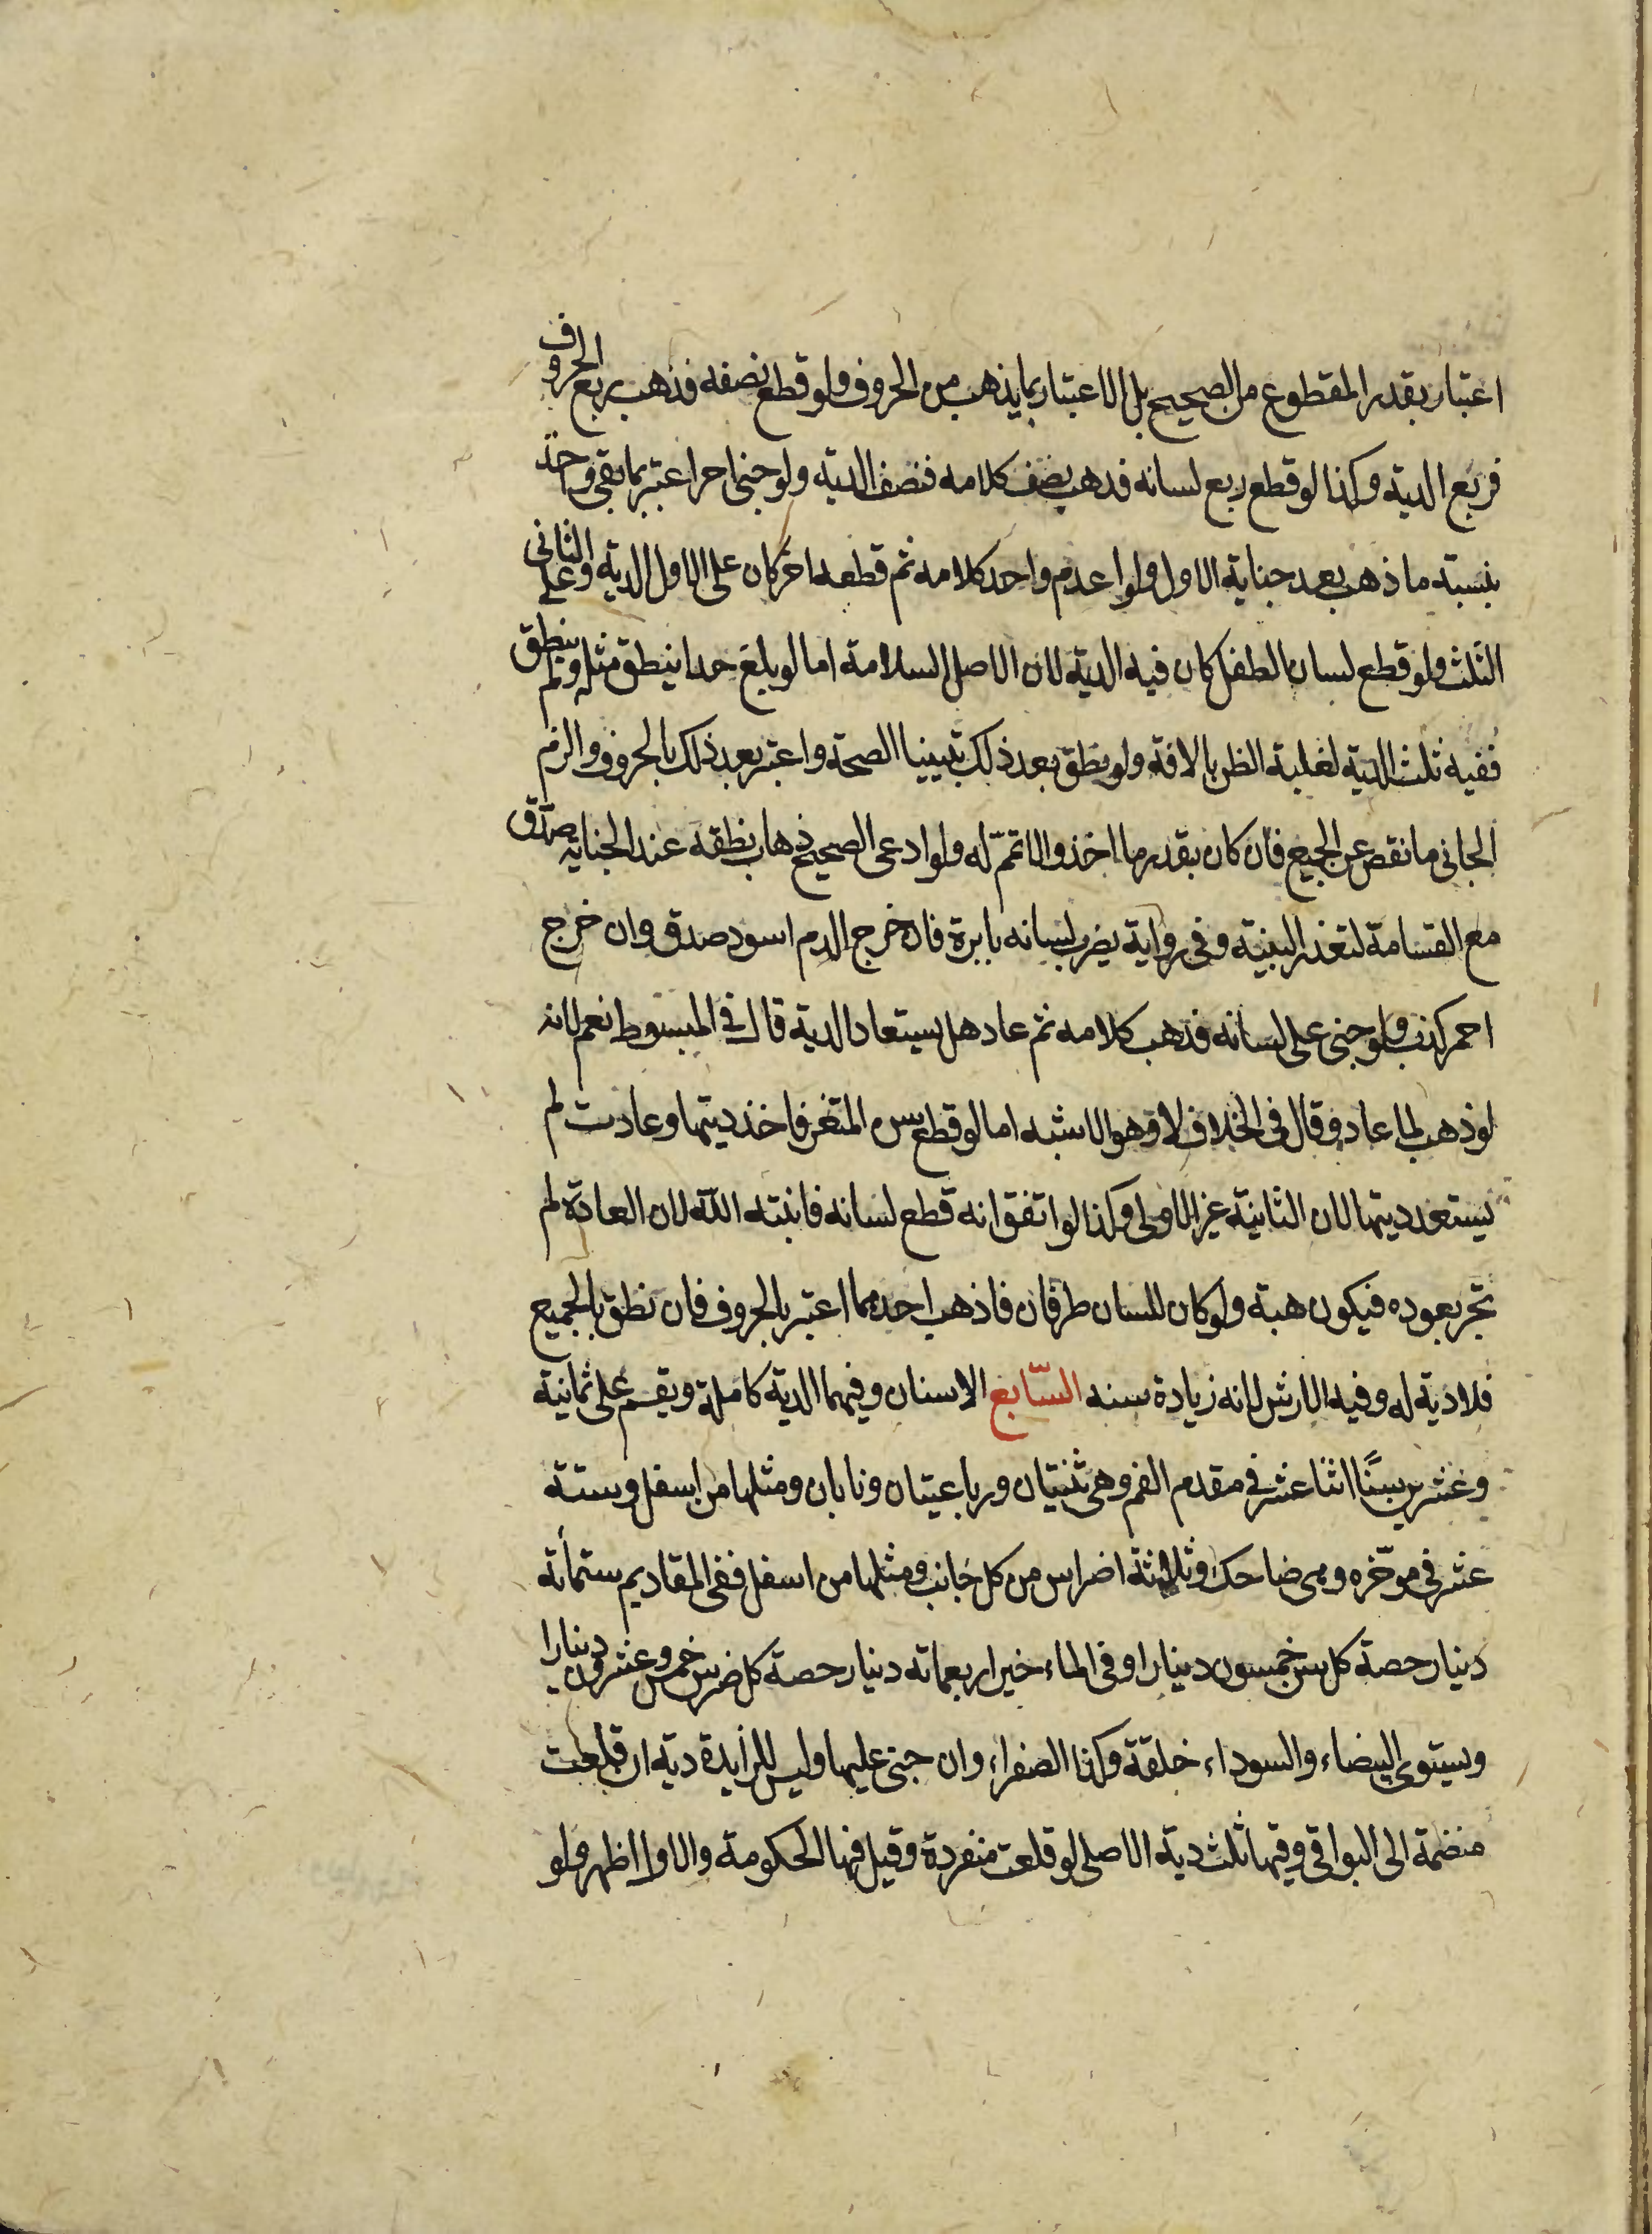 اعتبار بقدر المقطوع من الصحيح بل الاعتبار بما يذهب من الحروف ولو قطع نصفه فذهب ربع الحروف
فربع الدية وكذا لو قطع ربع لسانه فذهب نصف كلامه فنصف الدية ولو جنى اخر اعتبر بما بقى وخذ
بنسبة ما ذهب بعد جناية الاول ولو اعدم واحد كلامه ثم قطعه اخر كان على الاول الدية وعلى الثانى
الثلث ولو قطع لسان الطفل كان فيه الدية لان الاصل السلامة اما لو بلغ حدا ينطق مثله ولم ينطق
ففيه ثلث الدية لغلبة الظن بالافة ولو نطق بعد ذلك تبينا الصحة واعتبر بعد ذلك بالحروف والزم
الجانى ما نقص عن الجميع فان كان بقدر ما اخذ والا تمم له ولو ادعى الصحيح ذهاب نطقه عند الجناية صدق
مع القسامة لتعذر البينة وفى رواية يضرب لسانه بابرة فان خرج الدم اسود صدق وان خرج
احمر كذب ولو جنى على لسانه فذهب كلامه ثم عاد هل يستعاد الدية قال فى المبسوط نعم لانه
لو ذهب لما عاد وقال فى الخلاف لا وهو الاشبه اما لو قطع سن المثغر فاخذ ديتها وعادت لم
يستعد ديتها لان الثانية غير الاولى وكذا لو اتفق انه قطع لسانه فانبته الله لان العادة لم
تجر بعوده فيكون هبة ولو كان للسان طرفان فاذهب احدهما اعتبر بالحروف فان نطق بالجميع
فلا دية له وفيه الارش لانه زيادة سنه السّابع الاسنان وفيهما الدية كاملة ويقسم على ثمانية
وعشرين سنًّا اثنا عشر فى مقدم الفم وهى ثنيتان ورباعيتان ونابان ومثلها من اسفل وستة
عشر فى موخره وهى ضاحك وثلاثة اضراس من كل جانب ومثلها من اسفل ففى المقاديم ستمائة
دينار حصة كل سن خمسون دينارا وفى الماءخير اربعمائة دينار حصة كل ضرس خمس وعشرون دينارا
ويستوى البيضاء والسوداء خلقة وكذا الصفراء وان جنى عليها وليس للزايدة دية ان قلعت
منضمة الى البواقى وفيها ثلث دية الاصلى لو قلعت منفردة وقيل فيها الحكومة والاول اظهر ولو